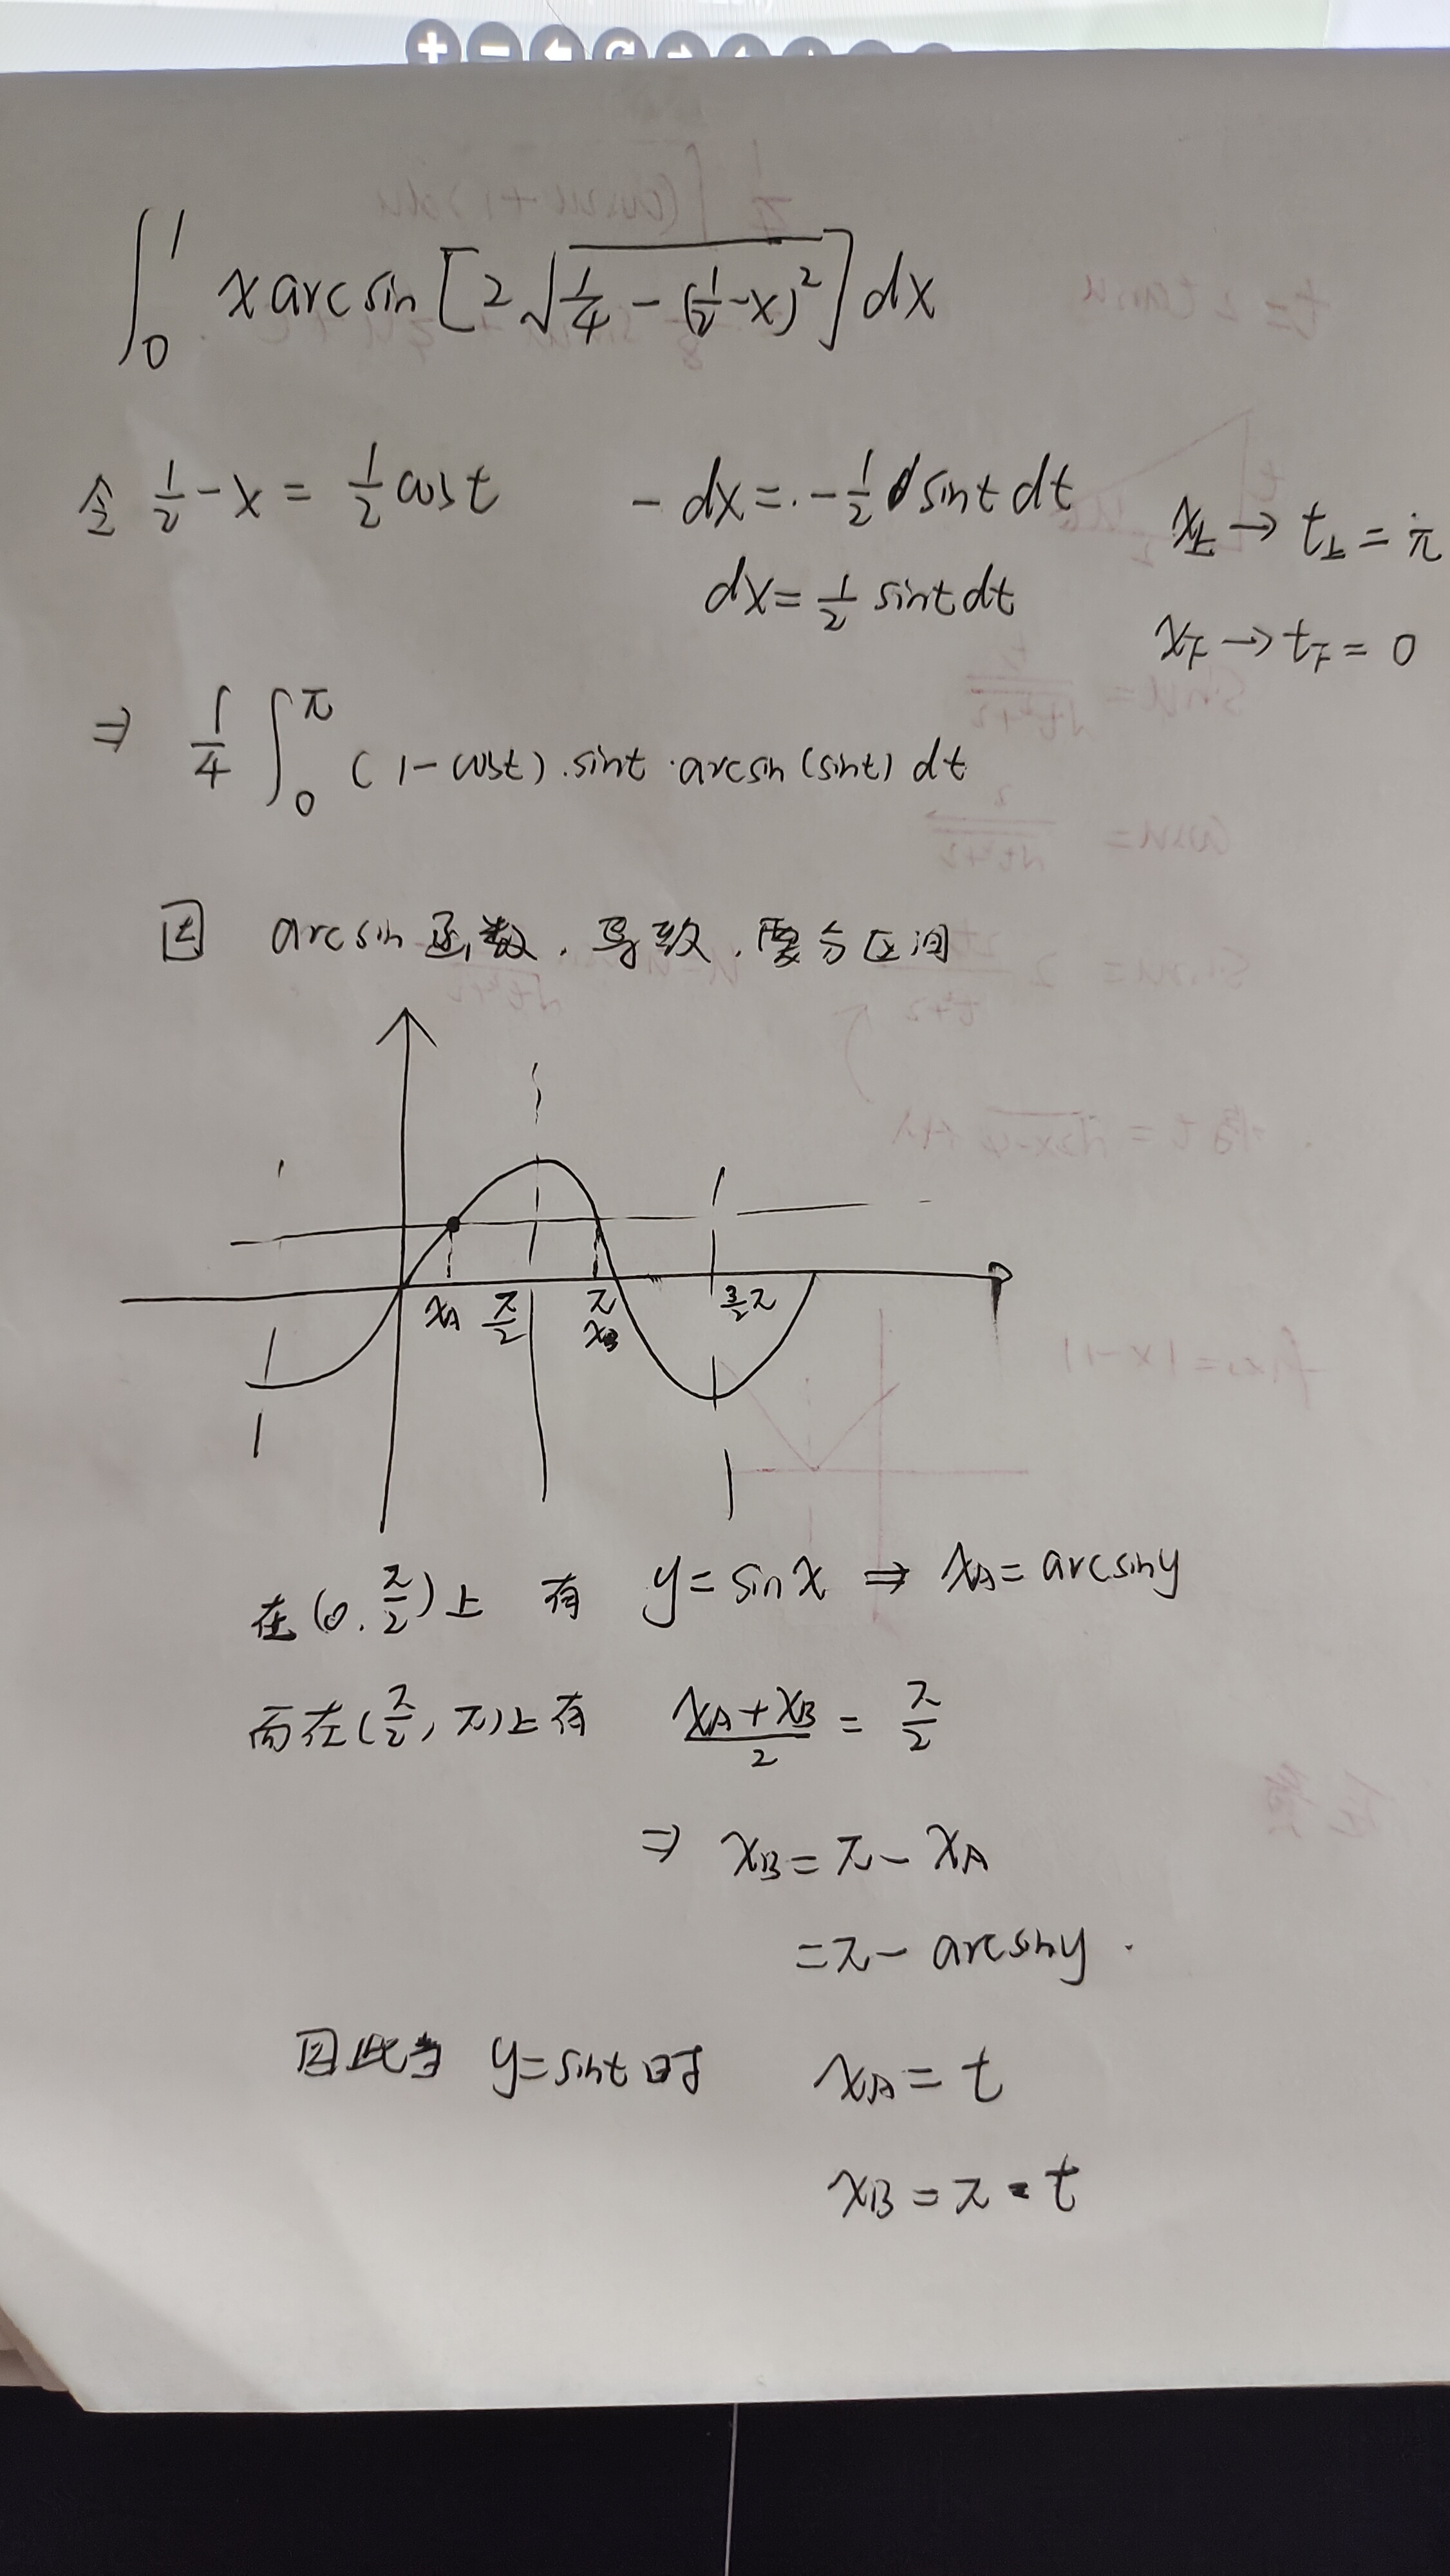 ∫₀¹ x arcsin[2√(1/4 - (1/2 - x)²)] dx
令 1/2 - x = 1/2 cost - dx = - 1/2 sint dt x上 → t上 = π
dx = 1/2 sint dt
x下 → t下 = 0
⇒ 1/4 ∫₀^π (1 - cost) · sint · arcsin(sint) dt
因 arcsin 函数, 导致, 要分区间
xA π/2 π xB 3/2 π
在 (0, π/2) 上 有 y = sinx ⇒ xA = arcsiny
而在 (π/2, π) 上有 (xA + xB)/2 = π/2
⇒ xB = π - xA
= π - arcsiny.
因此当 y = sint 时 xA = t
xB = π - t